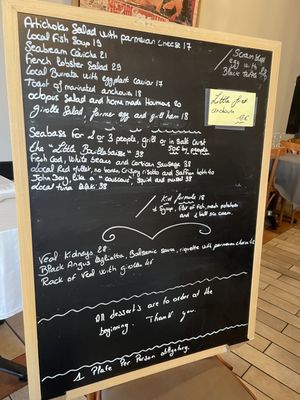 Artichokes Salad with parmesan cheese 17
Local Fish Soup 19
Seabream Ceviche 21
French Lobster Salad 29
Local Burrata with eggplant caviar 17
Toast of marinated anchovies 18
octopus Salad and home made Houmous 20
girolle Salad, farmer egg and grill ham 18
Scrambled
egg with
Black truffle
Little fried
anchovies
Seabass for 2 or 3 people, grill or in Salt Crust
50€ by people
The "Little Bouillabaisse" 38
Fish Cod, White Beans and Corsican Sausage 38
Local Red Mullet, no bone, Crispy risotto and Saffron
John Dory like a "couscous", squid and mussel 38
Local tuna steak 38
Kid formule 18
1 Syrup, filet of fish, mash potatoes
and 1 ball ice cream
Veal Kidneys 28
Black Angus Tagliatta, Balsamic sauce, riquette with parmesan cheese
Rack of Veal with girolle
All desserts are to order at the
beginning. Thank you.
1 Plate Per Person obligatory.